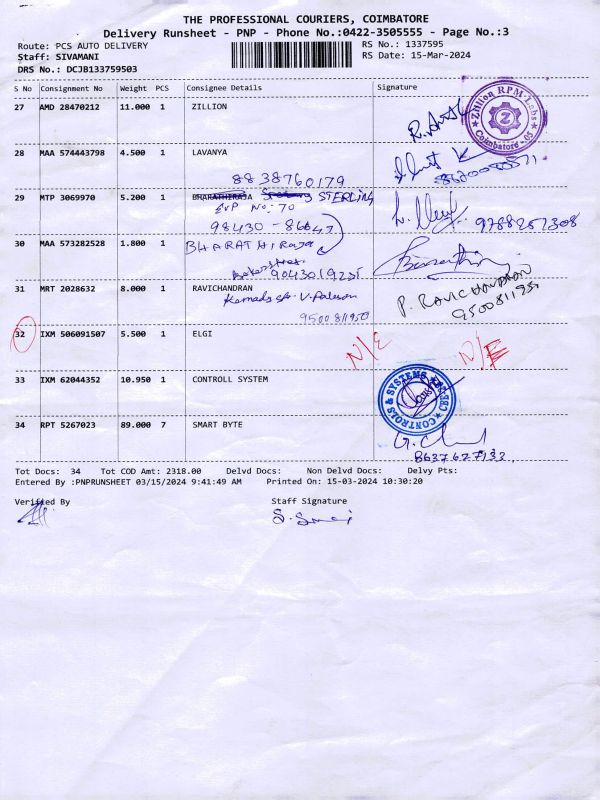 THE PROFESSIONAL COURIERS, COIMBATORE
Delivery Runsheet - PNP - Phone No.:0422-3505555 - Page No.:3
Route: PCS AUTO DELIVERY
RS No.: 1337595
Staff: SIVAMANI
RS Date: 15-Mar-2024
DRS No.: DCJB133759503
S No Consignment No Weight PCS Consignee Details Signature
27 AMD 28470212 11.000 1 ZILLION
Zillion RPM Labs
Coimbatore - 05
28 MAA 574443798 4.500 1 LAVANYA
8838760179
29 MTP 3069970 5.200 1 BHARATHIRAJA STERLING
EVP No: 70
9788252308
98430-86647
30 MAA 573282528 1.800 1 BHARATHIRAJA
9043019235
31 MRT 2028632 8.000 1 RAVICHANDRAN
P. RAVICHANDRAN
9500811950
32 IXM 506091507 5.500 1 ELGI
N/E N/E
33 IXM 62044352 10.950 1 CONTROLL SYSTEM
CONTROLS & SYSTEMS
34 RPT 5267023 89.000 7 SMART BYTE
8637677133
Tot Docs: 34 Tot COD Amt: 2318.00 Delvd Docs: Non Delvd Docs: Delvy Pts:
Entered By :PNPRUNSHEET 03/15/2024 9:41:49 AM Printed On: 15-03-2024 10:30:20
Verified By Staff Signature